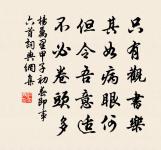 只有觀書樂
其如病眼何
但令吾意適
不必卷頭多
楊萬里甲子初春即事
六首詞典網集